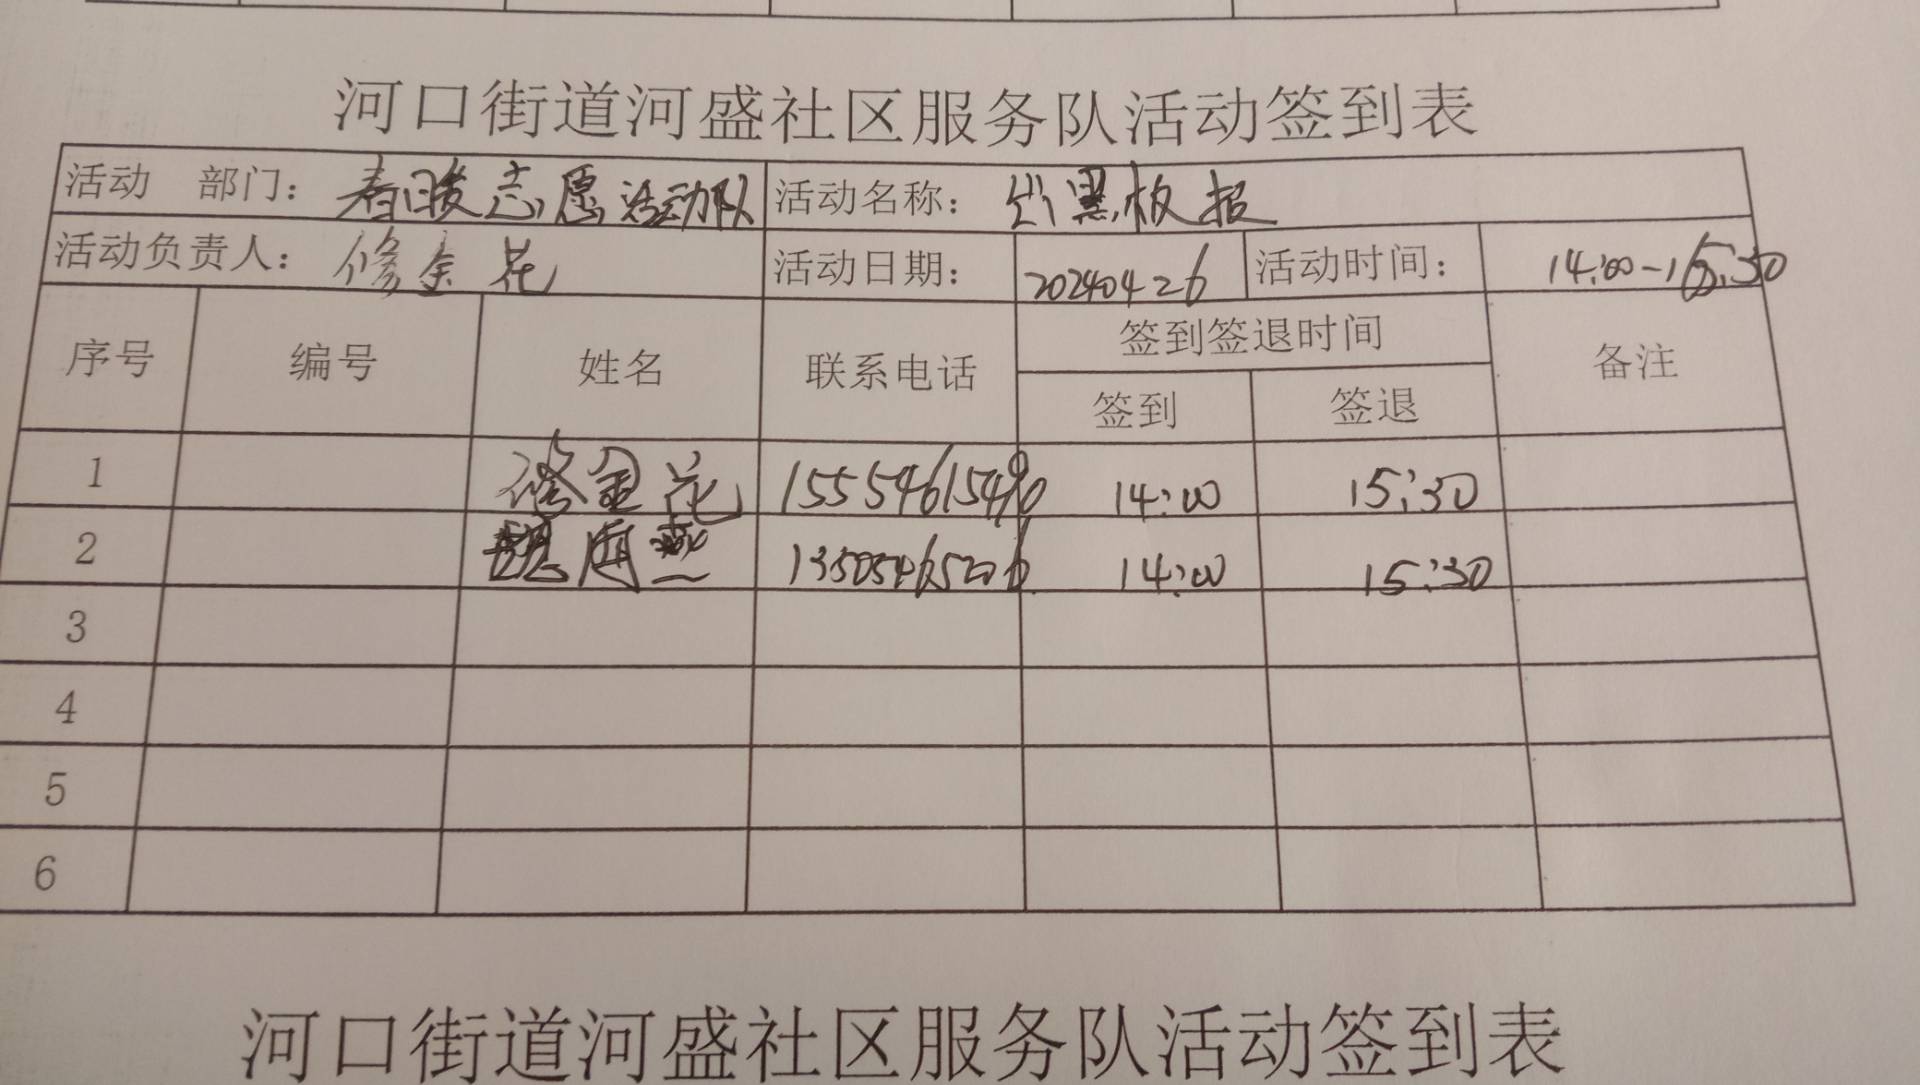 河口街道河盛社区服务队活动签到表
活动 部门: 春暖志愿活动队 活动名称: 出黑板报
活动负责人: 修金花 活动日期: 20240426 活动时间: 14:00-15:30
序号 编号 姓名 联系电话 签到签退时间 备注
签到 签退
1 修金花 15554615490 14:00 15:30
2 燕 13505465206 14:00 15:30
3
4
5
6
河口街道河盛社区服务队活动签到表